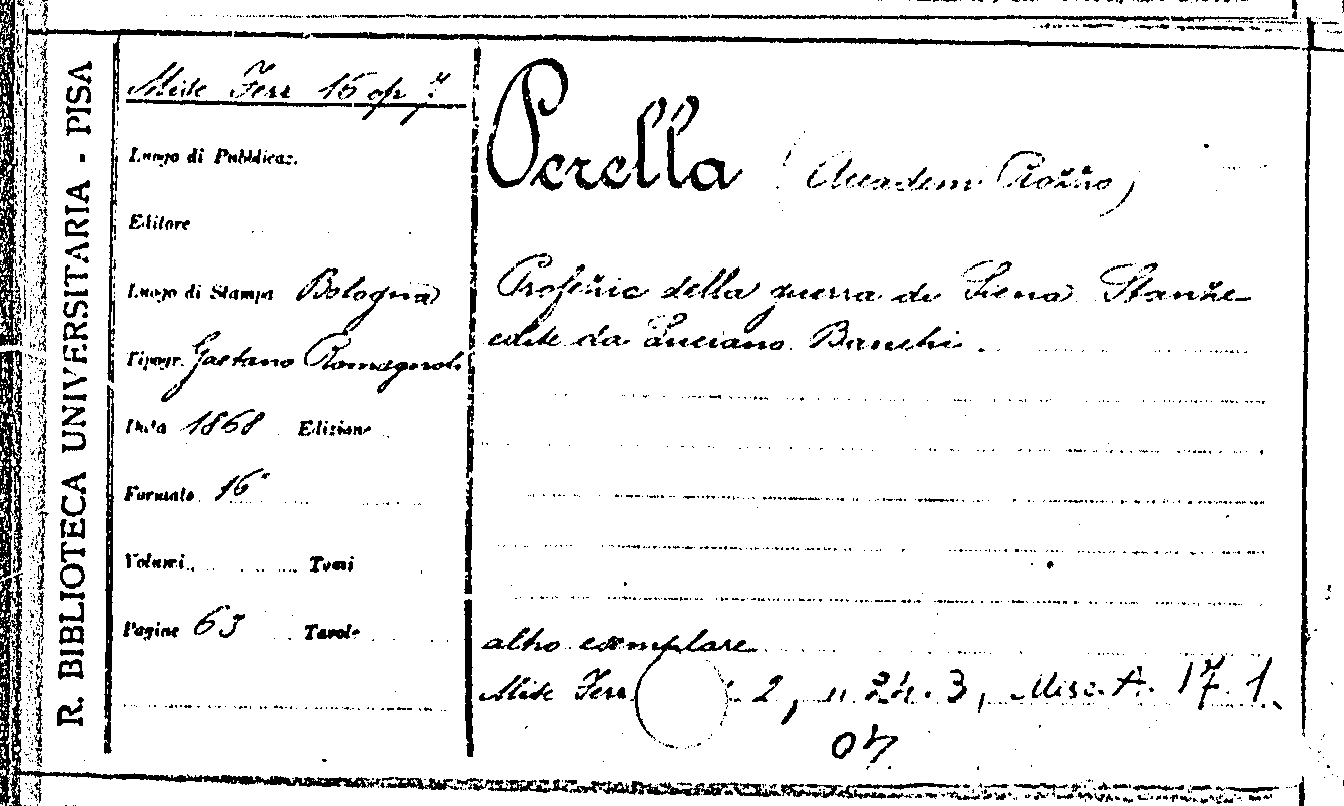 R. BIBLIOTECA UNIVERSITARIA - PISA
Misc Ferr 16 op 7
Luogo di Pubblicaz.
Editore
Luogo di Stampa Bologna
Tipogr. Gaetano Romagnoli
Data 1868 Edizione
Formato 16°
Volumi Tomi
Pagine 63 Tavole
Perella (Accadem Rozzo)
Profezie della guerra di Siena Stanze
edite da Luciano Banchi.
altro esemplare
Misc Ferr 2, n. 3, Misc. A. 17. 1.
07